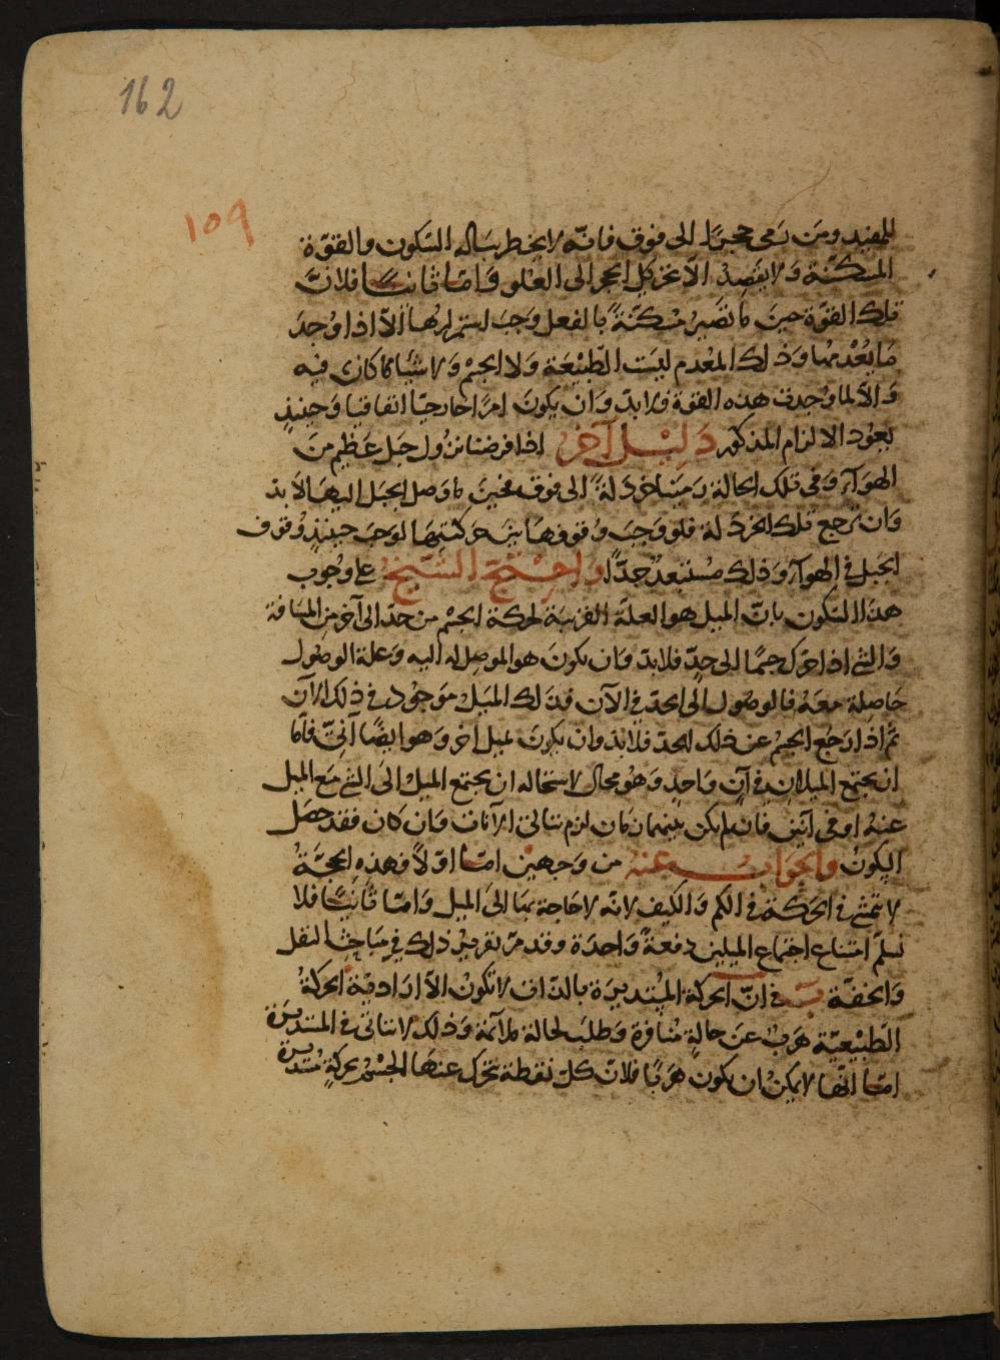 162
١٥٩
للمفيد ومن رمى حجرا الى فوق فانه لا يخطر بباله السكون والقوة
المسكنة ولا يقصد الا تحريك الحجر الى العلو واما ثانيا فلان
تلك القوة حين ما تصير مسكنة بالفعل وجب استمرارها الا اذا وجد
ما يعدمها وذلك المعدم ليست الطبيعة ولا الجسم ولا شيا مما كان فيه
والا لما وجدت هذه القوة ولا بد وان يكون امرا خارجيا اتفاقيا وحينئذ
يعود الالزام المذكور دليل آخر اذا فرضنا نزول جبل عظيم من
الهوآء وفى تلك الحالة رمينا خردلة الى فوق فحين ما وصل الجبل اليها لا بد
وان ترجع تلك الخردلة فلو وجب وقوفها بين حركتيها لوجب حينئذ وقوف
الجبل في الهوآء وذلك مستبعد جدا واحتج الشيخ على وجوب
هذا السكون بان الميل هو العلة القريبة لحركة الجسم من حد الى آخر من المسافة
والشئ اذا حرك جسما الى حد فلابد وان يكون هو الموصل له اليه وعلة الوصول
حاصلة معه فالوصول الى الحد في الآن فذلك الميل موجود في ذلك الآن
ثم اذا رجع الجسم عن ذلك الحد فلابد وان يكون لميل آخر وهو ايضا آنى فاما
ان يجتمع الميلان في آن واحد وهو محال لاستحاله ان يجتمع الميل الى الشئ مع الميل
عنه او فى آنين فان لم يكن بينهما زمان لزم تتالى الآنات وان كان فقد حصل
السكون والجواب عنه من وجهين اما اولا فهذه الحجة
لا تتمشى في الحركة في الكم والكيف لانه لا حاجة بها الى الميل واما ثانيا فلا
نسلم امتناع اجتماع الميلين دفعة واحدة وقد مر تقرير ذلك في مباحث الثقل
والخفة ب في ان الحركة المستديرة بالذات لا تكون الا ارادية الحركة
الطبيعية هرب عن حالة منافرة وطلب لحالة ملائمة وذلك لا يتاتى في المستديرة
اما انها لا يمكن ان تكون هربا فلان كل نقطة تحرك عنها الجسم بحركة مستديرة